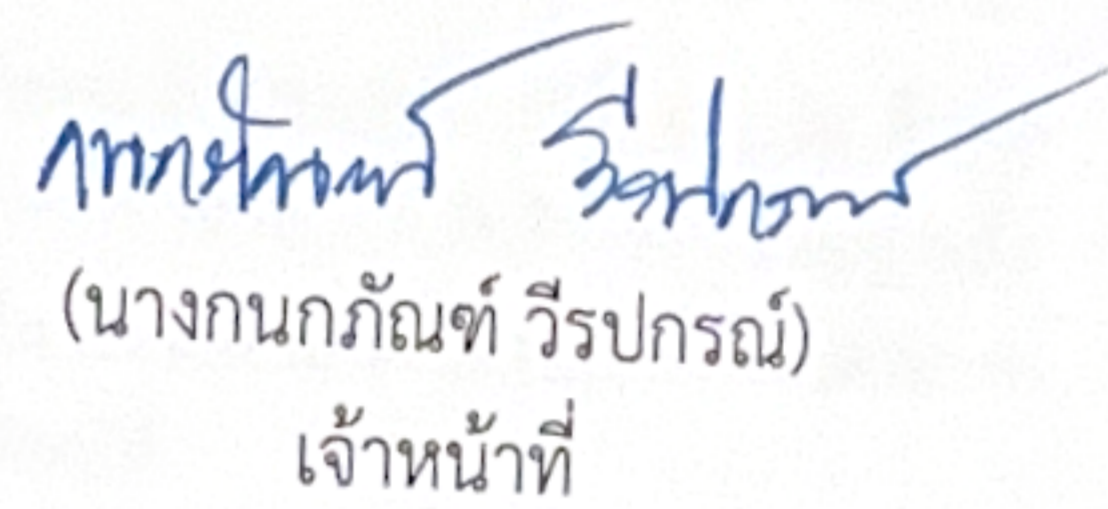 กนกภัณฑ์ วีรปกรณ์
(นางกนกภัณฑ์ วีรปกรณ์)
เจ้าหน้าที่